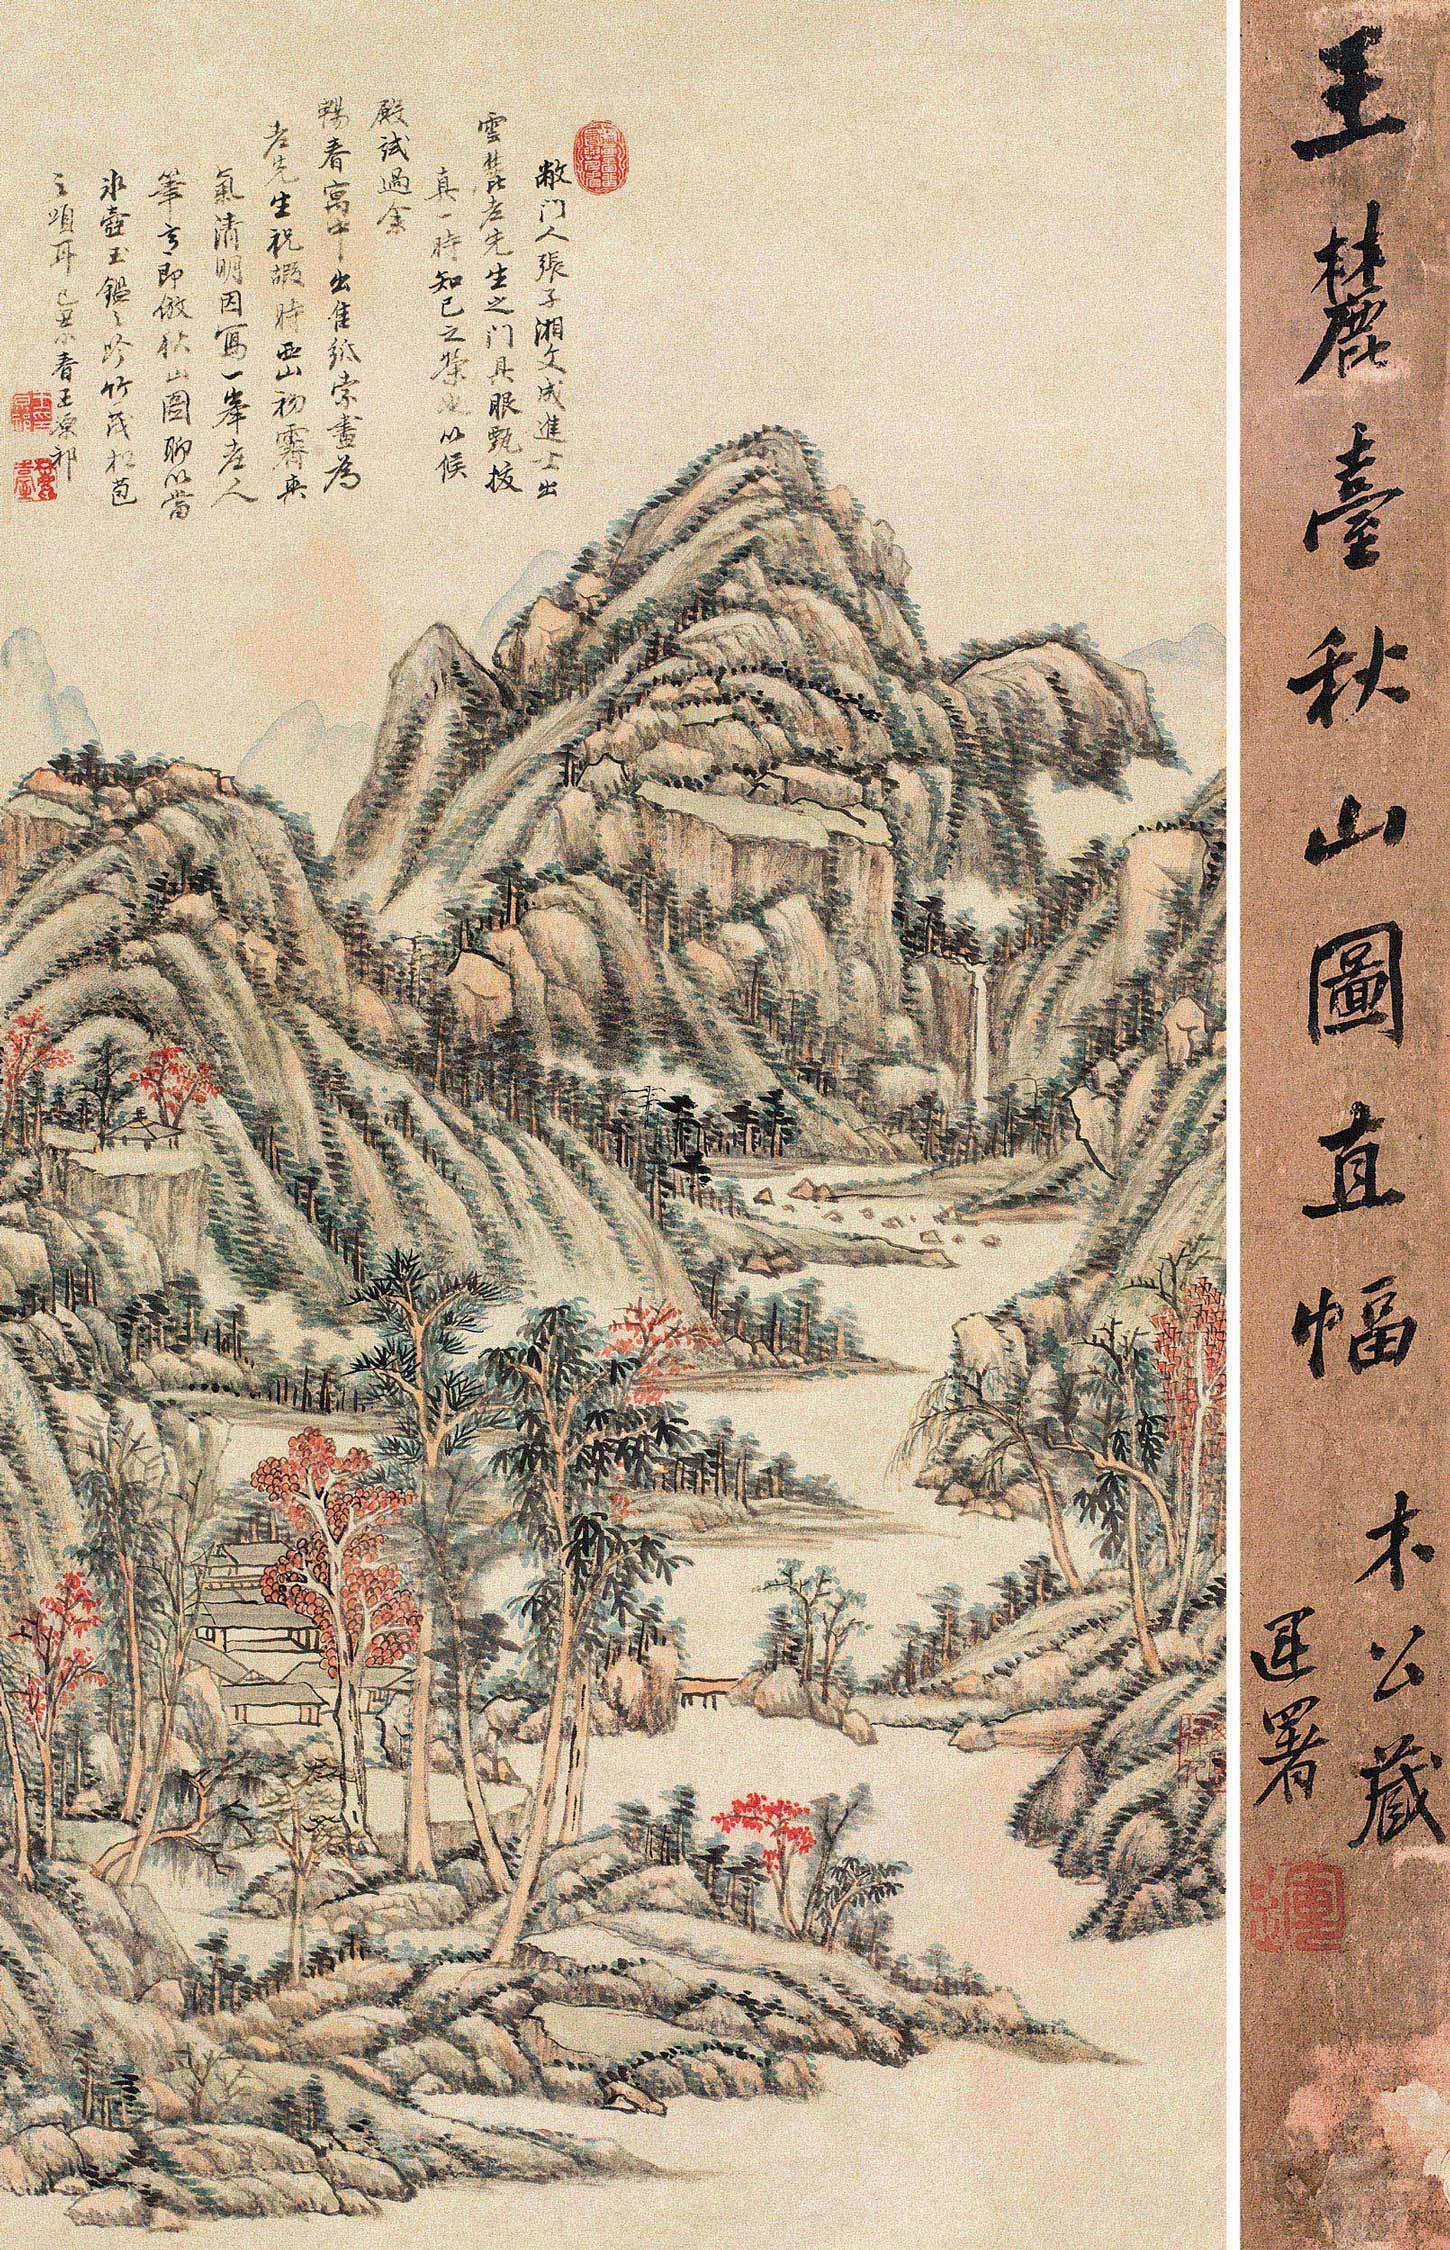 敝門人張子湘文成進士出
雲麓老先生之門具眼甄拔
真一時知己之榮也以候
殿試過余
暢春寓中出佳紙索畫為
老先生祝嘏時西山初霽爽
氣清明因寫一峯老人
筆意即倣秋山圖聊以當
冰壺玉鑑之吟竹茂松苞
之頌耳己丑小春王原祁
王麓臺秋山圖直幅
木公藏
運署